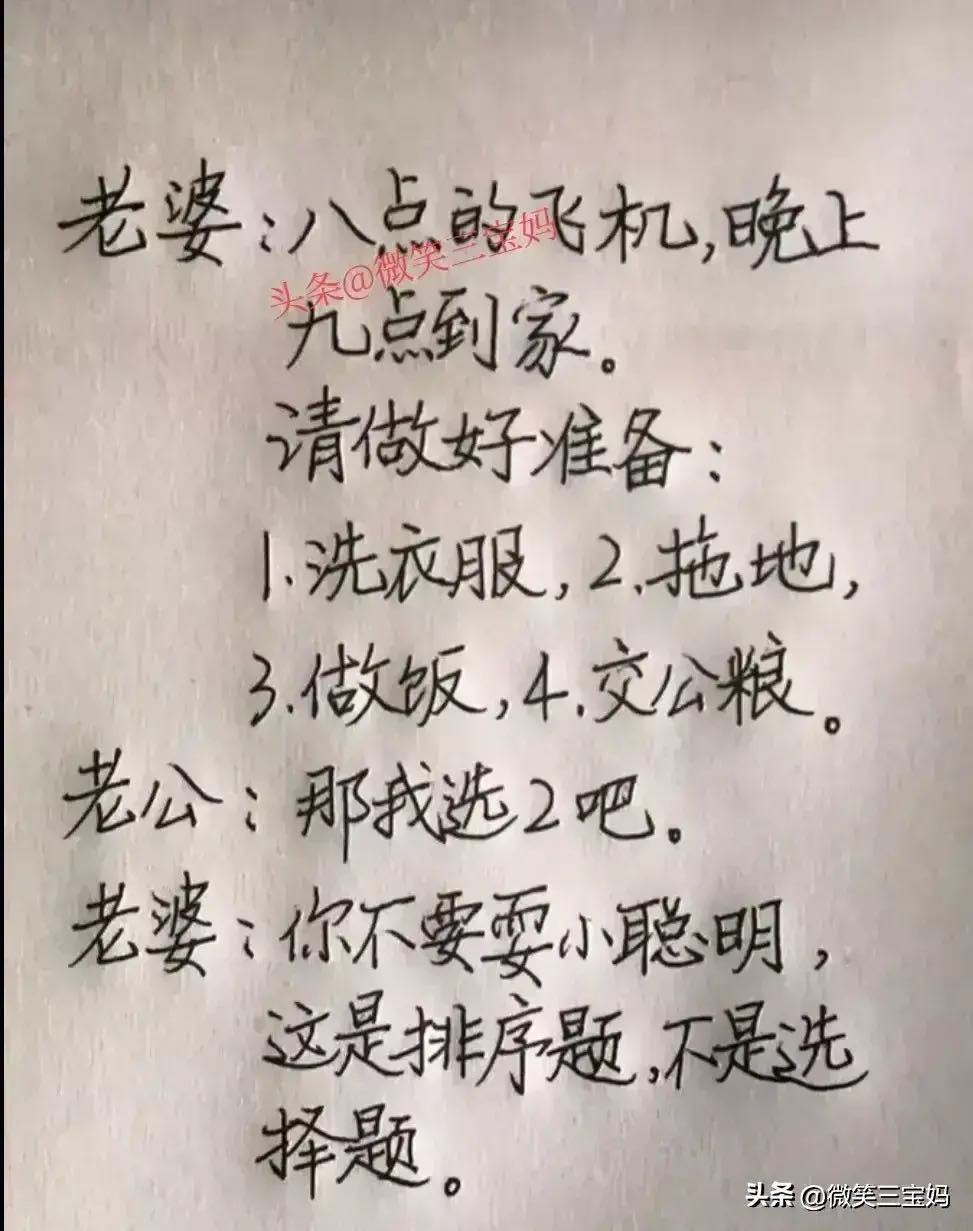 老婆：八点的飞机，晚上
头条@微笑三宝妈
九点到家。
请做好准备：
1.洗衣服，2.拖地，
3.做饭，4.交公粮。
老公：那我选2吧。
老婆：你不要耍小聪明，
这是排序题，不是选
择题。
头条 @微笑三宝妈